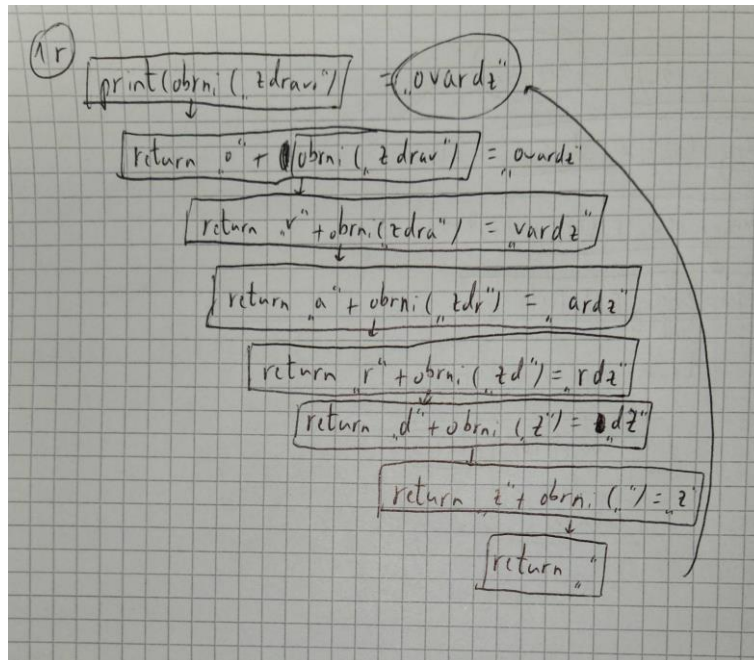 1r
print(obrni („zdravo“) = „ovardz“
return „o“ + obrni („zdrav“) = „ovardz“
return „v“ + obrni („zdra“) = „vardz“
return „a“ + obrni („zdr“) = „ardz“
return „r“ + obrni („zd“) = „rdz“
return „d“ + obrni („z“) = „dz“
return „z“ + obrni („“) = „z“
return „“